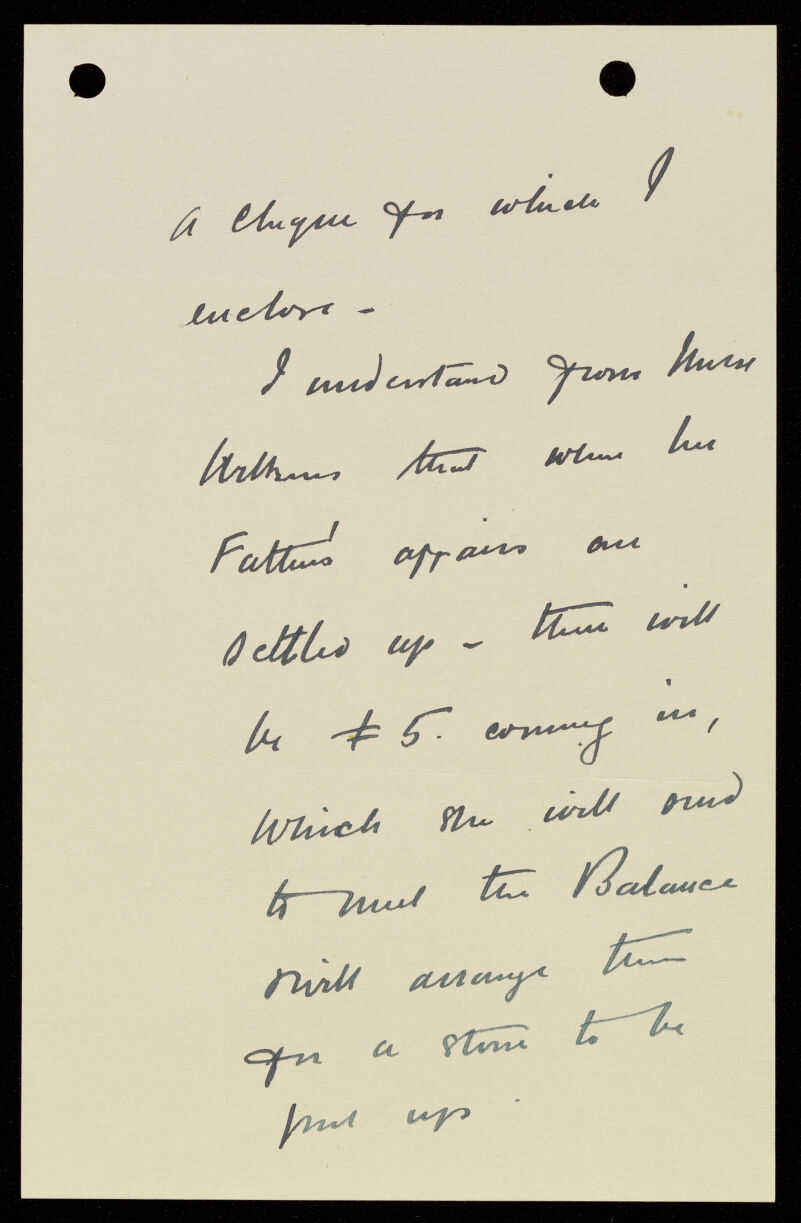 a cheque for which I
enclose -
I understand from Nurse
that when her
Father's affairs are
settled up - there will
be £5. coming in,
which she will send
to meet the Balance
& will arrange then
for a stone to be
put up.